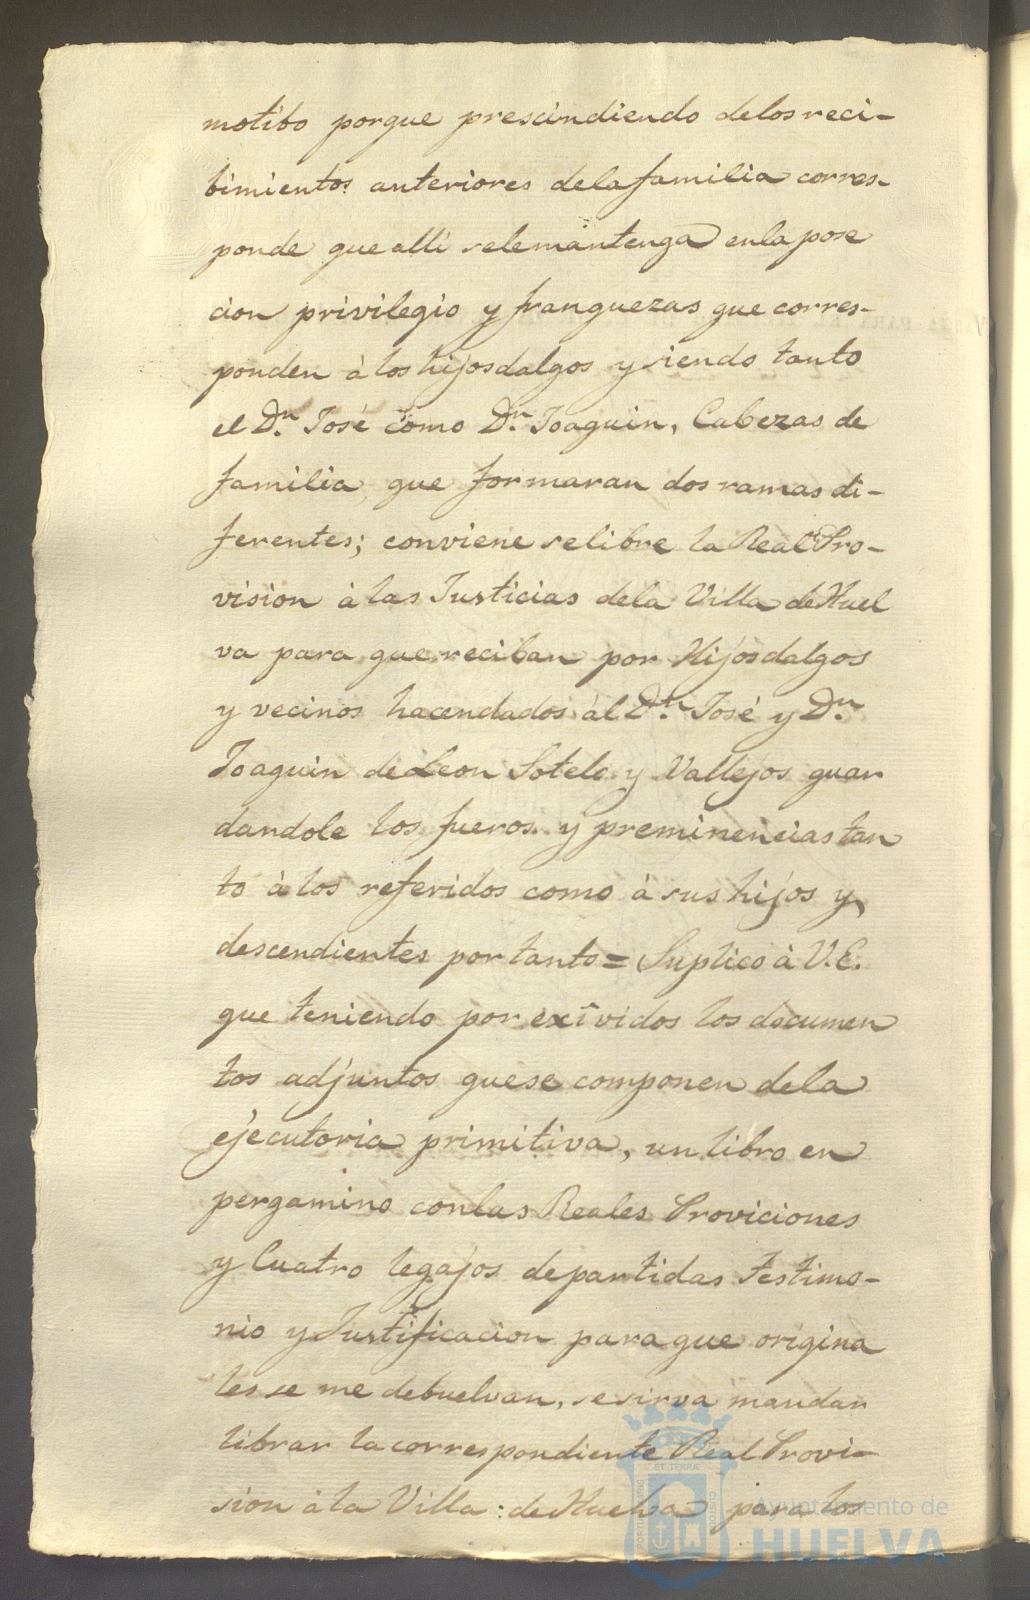 motibo porque presindiendo delos reci-
bimientos anteriores dela familia corres-
ponde que alli sele mantenga en la pose
cion privilegio y franquezas que corres-
ponden à los hijosdalgos y siendo tanto
el Dn. José como Dn. Joaquin, Cabezas de
familia que formaran dos ramas di-
ferentes; conviene se libre la Real Pro-
vision à las Justicias dela Villa de Huel
va para que reciban por Hijosdalgos
y vecinos hacendados àl Dn. José y Dn.
Joaquin de Leon Sotelo y Vallejos guar
dandole los fueros y preminencias tan
to à los referidos como à sus hijos y
descendientes por tanto = Suplico à V.E.
que teniendo por exividos los documen
tos adjuntos que se componen dela
ejecutoria primitiva, un libro en
pergamino con las Reales Proviciones
y Cuatro legajos de partidas testimo-
nio y Justificacion para que origina
les se me debuelvan, se sirva mandar
librar la correspondiente Real Provi-
sion à la Villa: de Huelva para los
Ayuntamiento de
HUELVA